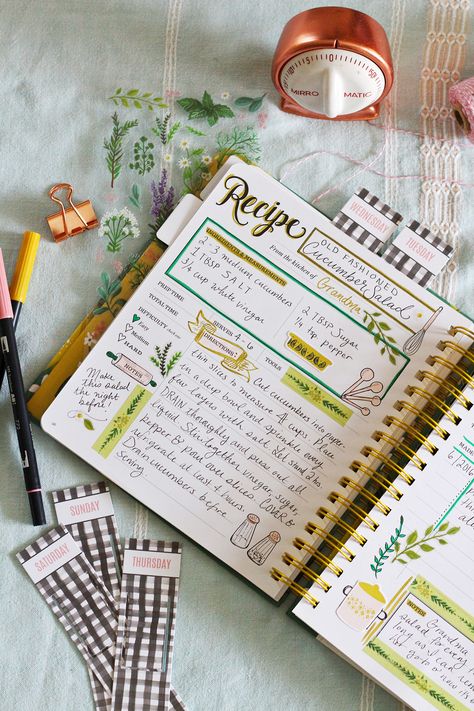 MIRRO MATIC
50
WEDNESDAY
TUESDAY
Recipe
OLD FASHIONED
Cucumber Salad
From the kitchen of: Grandma
INGREDIENTS & MEASUREMENTS
2-3 medium cucumbers
1 TBSP SALT
1/4 cup white vinegar
2 TBSP Sugar
1/4 tsp pepper
PREP TIME
TOTAL TIME
DIFFICULTY
Easy
Medium
Hard
SERVES 4-6
DIRECTIONS:
TOOLS
NOTES
Make this salad the
night before!
Cut cucumbers into paper
thin slices to measure 4 cups. Place
in a deep bowl and sprinkle every
few layers with salt. Let stand 2 hrs.
DRAIN thoroughly and press out all
liquid. Stir together vinegar, sugar,
pepper & pour over slices. COVER &
Refrigerate at least 4 hours.
Drain cucumbers before
serving.
SUNDAY
SATURDAY
THURSDAY
NOTES
Grandma
salad for every
long as I can